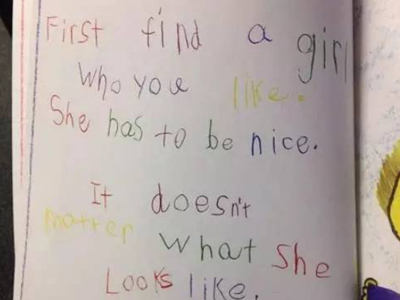 First find a girl
who you like.
She has to be nice.
It doesn't
matter what she
Looks like.